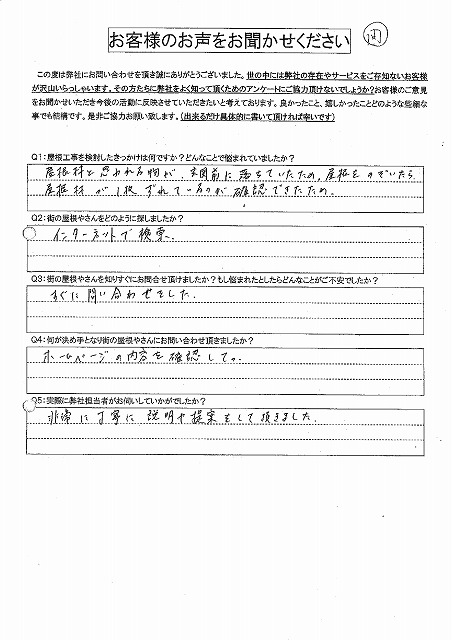 お客様のお声をお聞かせください
この度は弊社にお問い合わせを頂き誠にありがとうございました。世の中には弊社の存在やサービスをご存知ないお客様
が沢山いらっしゃいます。その方たちに弊社をよく知って頂くためのアンケートにご協力頂けないでしょうか?お客様のご意見
をお聞かせいただき今後の活動に反映させていただきたいと考えております。良かったこと、嬉しかったことどのような些細な
事でも結構です。是非ご協力お願い致します。(出来るだけ具体的に書いて頂ければ幸いです)
Q1:屋根工事を検討したきっかけは何ですか?どんなことで悩まれていましたか?
屋根材と思われる物が、玄関前に落ちていたため、屋根をのぞいたら、
屋根材が1枚ずれているのが確認できたため。
Q2:街の屋根やさんをどのように探しましたか?
インターネットで検索。
Q3:街の屋根やさんを知りすぐにお問合せ頂けましたか?もし悩まれたとしたらどんなことがご不安でしたか?
すぐに問い合わせをした。
Q4:何が決め手となり街の屋根やさんにお問い合わせ頂きましたか?
ホームページの内容を確認して。
Q5:実際に弊社担当者がお伺いしていかがでしたか?
非常に丁寧に説明や提案をして頂きました。